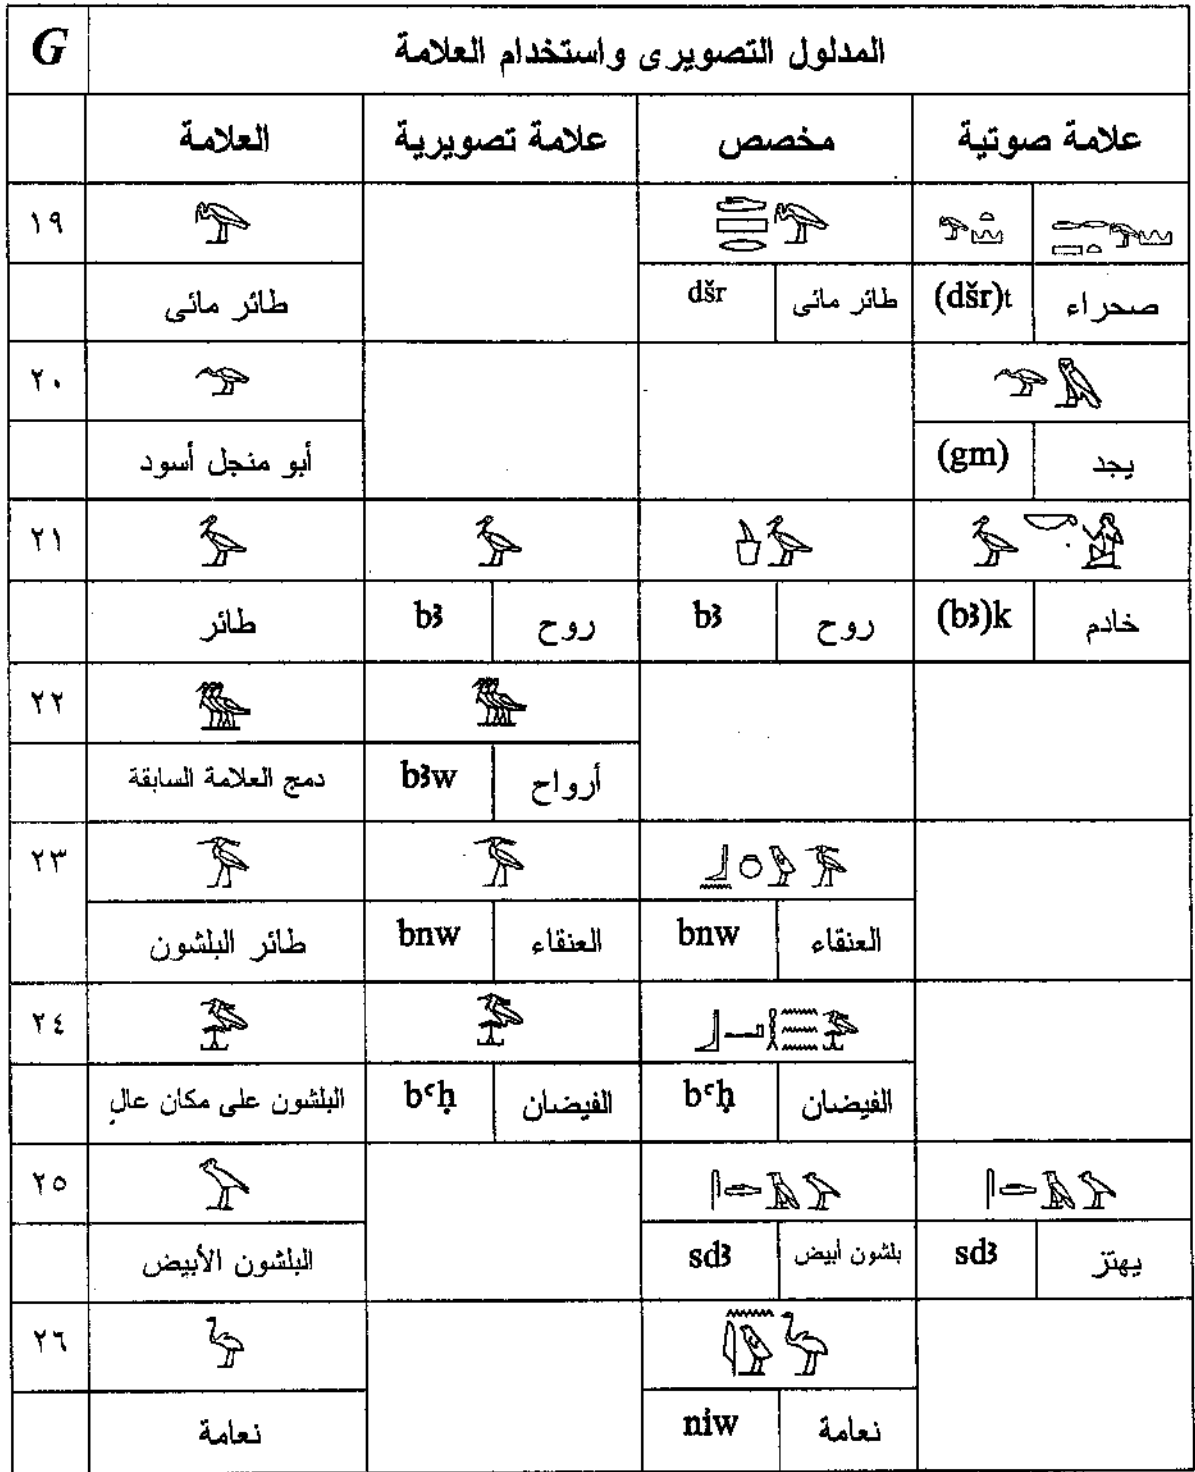 G المدلول التصويرى واستخدام العلامة
العلامة علامة تصويرية مخصص علامة صوتية
١٩
طائر مائى dšr طائر مائى (dšr)t صحراء
٢٠
أبو منجل أسود (gm) يجد
٢١
طائر bꜣ روح bꜣ روح (bꜣ)k خادم
٢٢
دمج العلامة السابقة bꜣw أرواح
٢٣
طائر البلشون bnw العنقاء bnw العنقاء
٢٤
البلشون على مكان عالٍ bꜥḥ الفيضان bꜥḥ الفيضان
٢٥
البلشون الأبيض sdꜣ بلشون أبيض sdꜣ يهتز
٢٦
نعامة niw نعامة